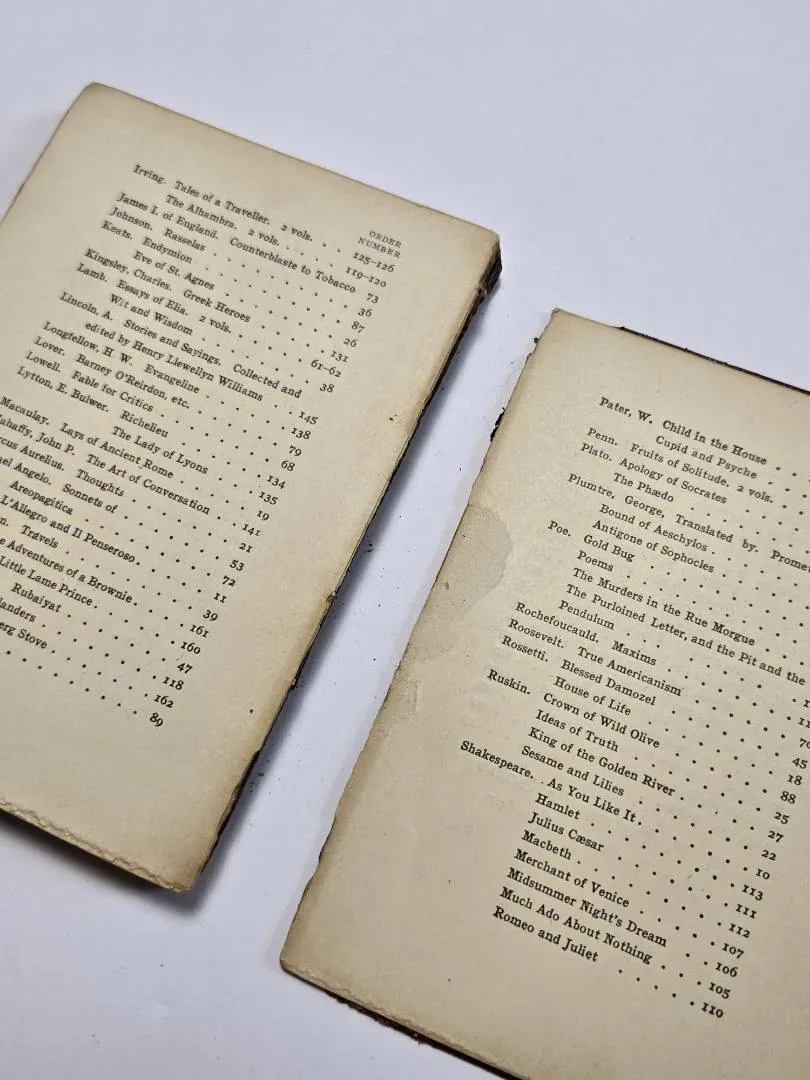 ORDER
NUMBER
Irving. Tales of a Traveller. 2 vols. . . . 125–126
The Alhambra. 2 vols. . . . . 119–120
James I. of England. Counterblaste to Tobacco 73
Johnson. Rasselas . . . . . . . . 36
Keats. Endymion . . . . . . . . 87
Eve of St. Agnes . . . . . . . 26
Kingsley, Charles. Greek Heroes . . . . . 131
Lamb. Essays of Elia. 2 vols. . . . . . 61–62
Wit and Wisdom . . . . . . . 38
Lincoln, A. Stories and Sayings. Collected and
edited by Henry Llewellyn Williams . . 145
Longfellow, H. W. Evangeline . . . . . 138
Lover. Barney O'Reirdon, etc. . . . . . 79
Lowell. Fable for Critics . . . . . . . 68
Lytton, E. Bulwer. Richelieu . . . . . . 134
The Lady of Lyons . . . . 135
Macaulay. Lays of Ancient Rome . . . . . 19
ahaffy, John P. The Art of Conversation . . 141
rcus Aurelius. Thoughts . . . . . . 21
ael Angelo. Sonnets of . . . . . . 53
Areopagitica . . . . . . . 72
L'Allegro and Il Penseroso . . . . 11
n. Travels . . . . . . . 39
e Adventures of a Brownie . . . . 161
Little Lame Prince . . . . . 160
Rubaiyat . . . . . . 47
landers . . . . . . . 118
erg Stove . . . . . . 162
. . . . . . . 89
Pater, W. Child in the House . . .
Cupid and Psyche . . .
Penn. Fruits of Solitude. 2 vols. . .
Plato. Apology of Socrates . . . .
The Phædo . . . . . .
Plumtre, George, Translated by. Promet
Bound of Aeschylos . . . .
Antigone of Sophocles . . . .
Poe. Gold Bug . . . . . . .
Poems . . . . . . . .
The Murders in the Rue Morgue . .
The Purloined Letter, and the Pit and the
Pendulum . . . . . . . 1
Rochefoucauld. Maxims . . . . . . 11
Roosevelt. True Americanism . . . . . 70
Rossetti. Blessed Damozel . . . . . . 45
House of Life . . . . . . . 18
Ruskin. Crown of Wild Olive . . . . . . 88
Ideas of Truth . . . . . . . 25
King of the Golden River . . . . . 27
Sesame and Lilies . . . . . . 22
Shakespeare. As You Like It . . . . . . 10
Hamlet . . . . . . . 113
Julius Cæsar . . . . . . 111
Macbeth . . . . . . . 112
Merchant of Venice . . . . 107
Midsummer Night's Dream . . . 106
Much Ado About Nothing . . . 105
Romeo and Juliet . . . . . 110